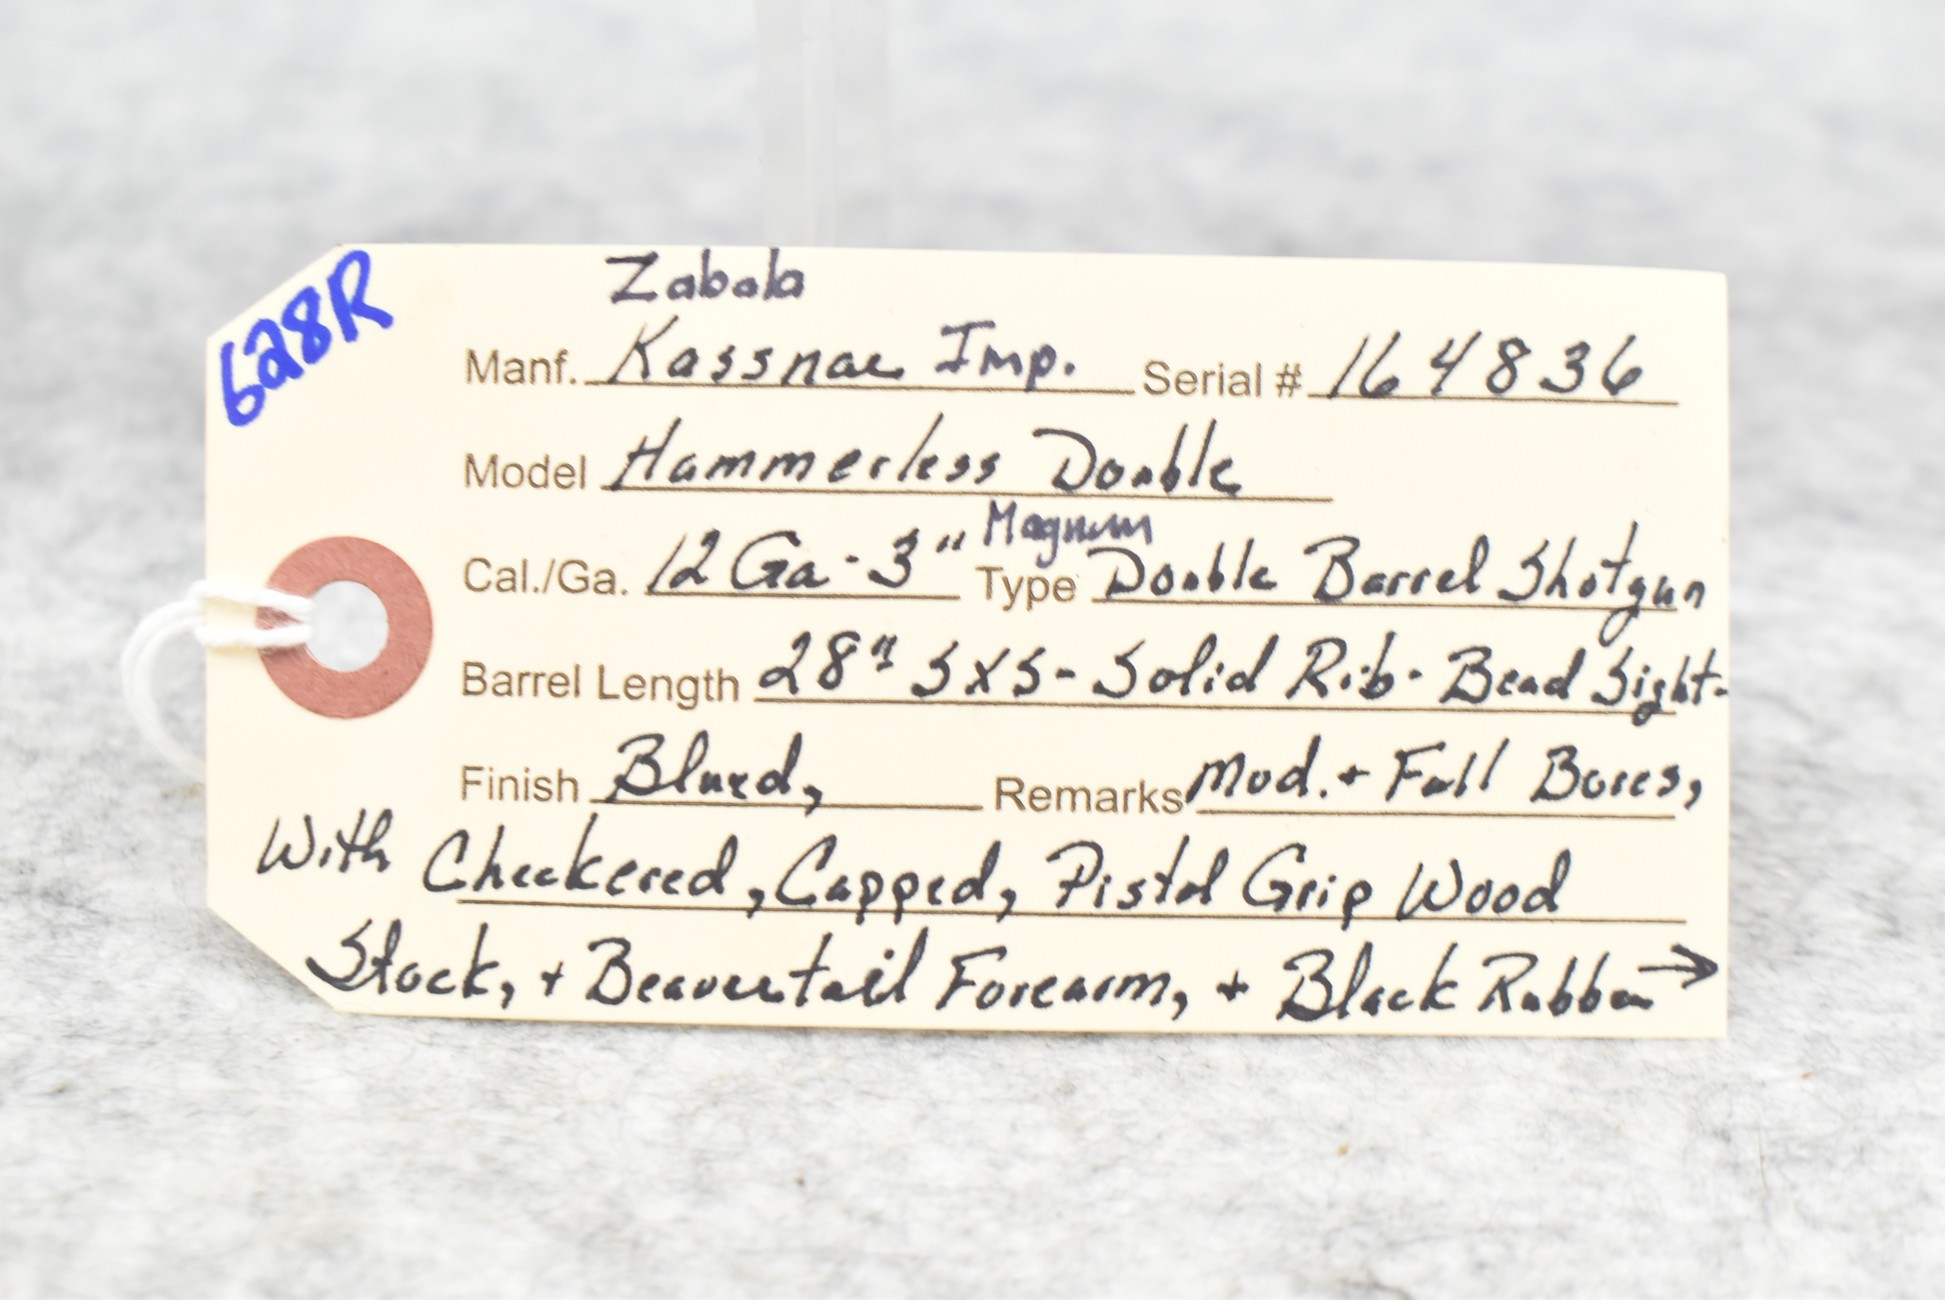 628R
Zabala
Manf. Kassnar Imp. Serial # 164836
Model Hammerless Double
Magnum
Cal./Ga. 12 Ga - 3" Type Double Barrel Shotgun
Barrel Length 28" SXS - Solid Rib - Bead Sight -
Finish Blued, Remarks Mod. + Full Bores,
With Checkered, Capped, Pistol Grip Wood
Stock, + Beavertail Forearm, + Black Rubber →